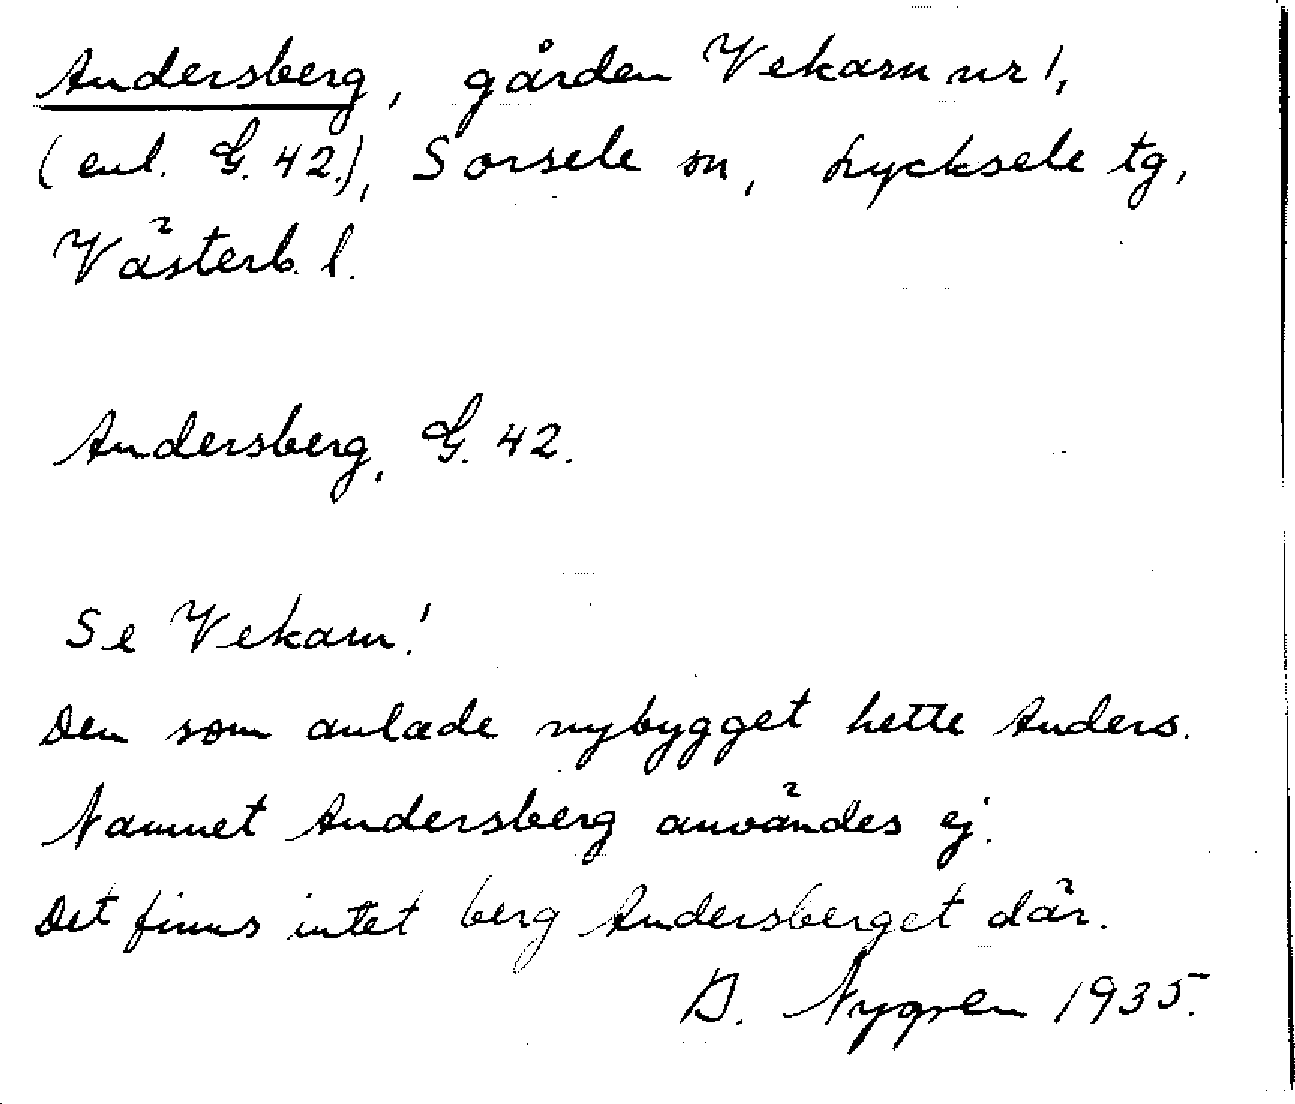 Andersberg, gården Vekarn nr 1,
(enl. G. 42.), Sorsele sn, Lycksele tg,
Västerb. l.
Andersberg, G. 42.
Se Vekarn!
Den som anlade nybygget hette Anders.
Namnet Andersberg användes ej.
Det finns intet berg Andersberget där.
D. Nygren 1935.